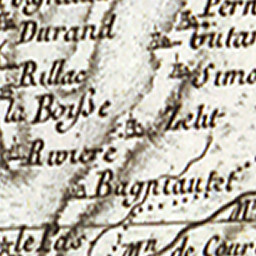 Durand
Rillac
Simo
la Boysse
Zelit
Riviere
Bagniautet
le Pas
Mn de Cour